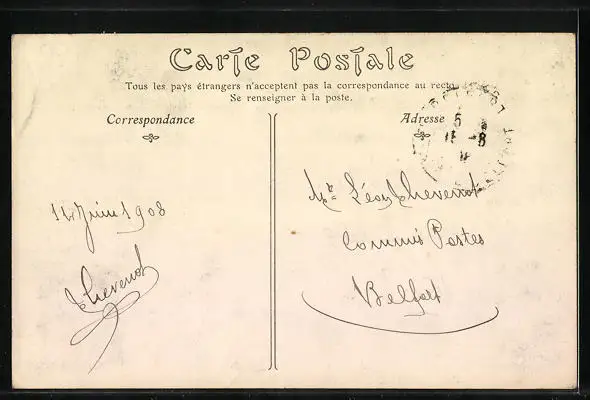 Carte Postale
Tous les pays étrangers n'acceptent pas la correspondance au recto
Se renseigner à la poste.
Correspondance
Adresse
11 Juin 1908
Thevenot
Mr Léon Thevenot
Commis Postes
Belfort